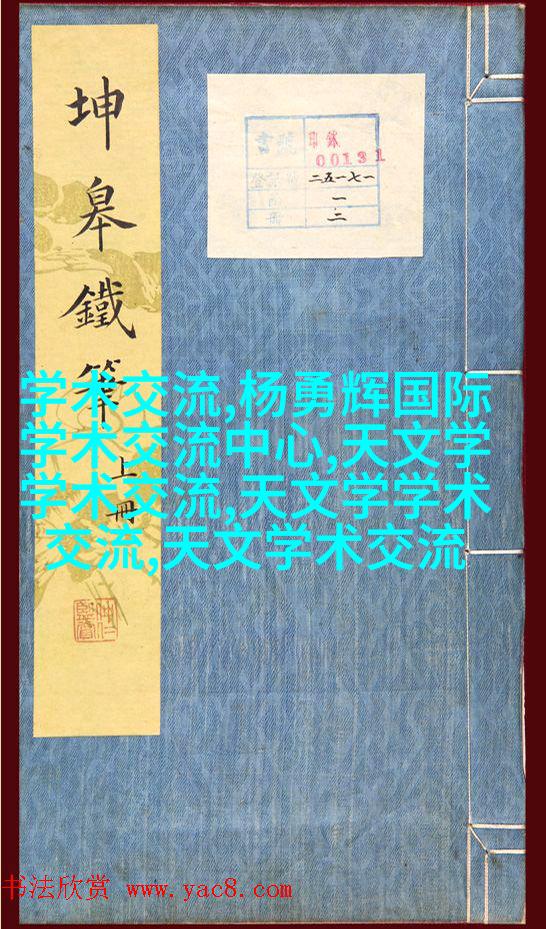 坤皋鐵筆
上冊
書號
印 鉢
00131
二五一七一
一
二
学术交流,杨勇辉国际
学术交流中心,天文学
学术交流,天文学学术
交流,天文学术交流
书法欣赏 www.yac8.com